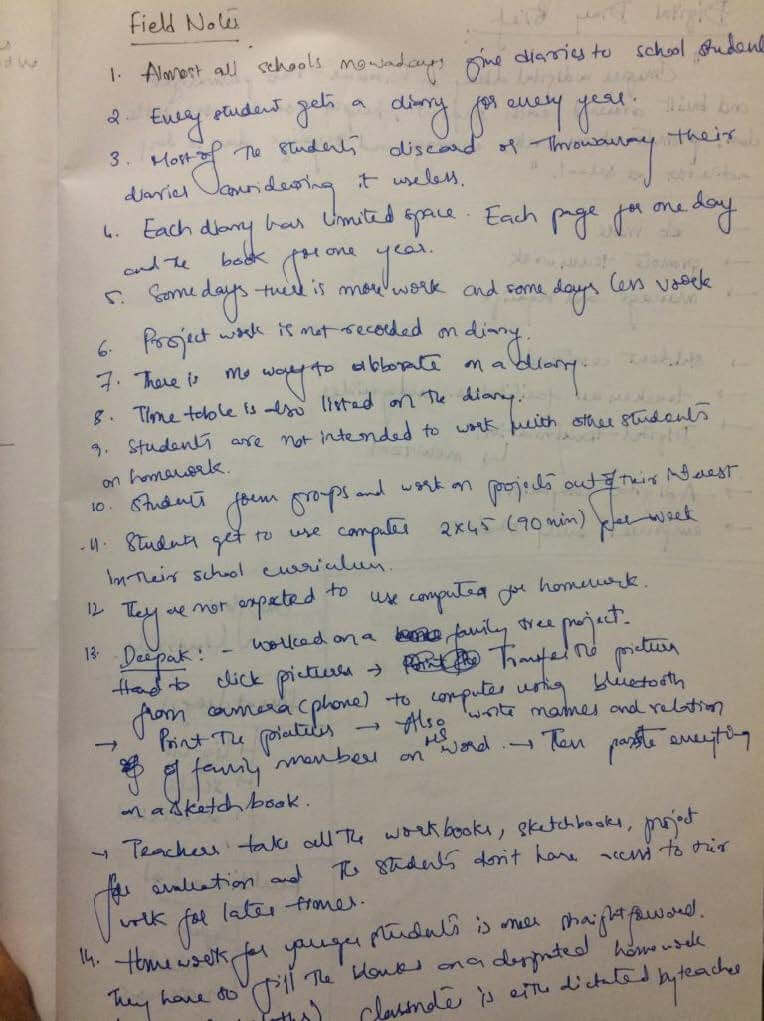 Field Notes
1. Almost all schools nowadays give diaries to school student
2. Every student gets a diary for every year.
3. Most of the students discard or throwaway their
diaries considering it useless.
4. Each diary has limited space. Each page for one day
and the book for one year.
5. Some days there is more work and some days less work
6. Project work is not recorded on diary.
7. There is no way to on a diary.
8. Time table is also listed on the diary.
9. Students are not intended to work with other students
on homework.
10. Students form groups and work on projects out of their interest
11. Students get to use computer 2x45 (90 min) per week
in their school curriculum.
12 They are not expected to use computer for homework.
13. Deepak: - worked on a family tree project.
Had to click pictures → Transfer the picture
from camera (phone) to computer using bluetooth
→ Print the pictures → Also write names and relation
of family members on MS word. → Then paste everything
on a sketchbook.
→ Teachers take all the workbooks, sketchbooks, project
for evaluation and the students don't have access to their
work for later times.
14. Homework for younger students is more straight forward.
They have to fill the blanks on a homework
Classnote is either dictated by teacher